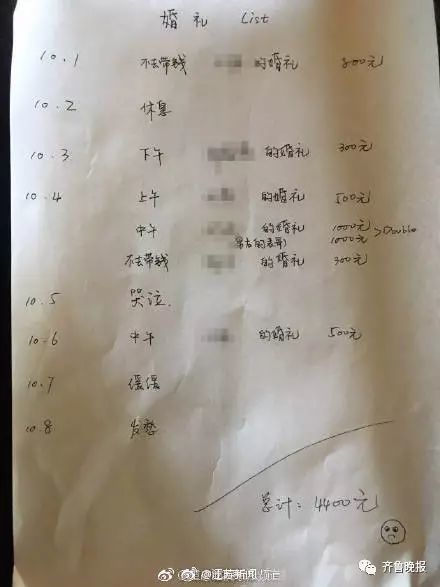 婚礼 List
10.1 不去带钱 的婚礼 800元
10.2 休息
10.3 下午 的婚礼 300元
10.4 上午 的婚礼 500元
中午 的婚礼 1000元
的表哥) 1000元 >Double
不去带钱 的婚礼 300元
10.5 哭泣.
10.6 中午 的婚礼 500元
10.7 缓缓
10.8 发愁
总计: 4400元
@江苏新闻
齐鲁晚报